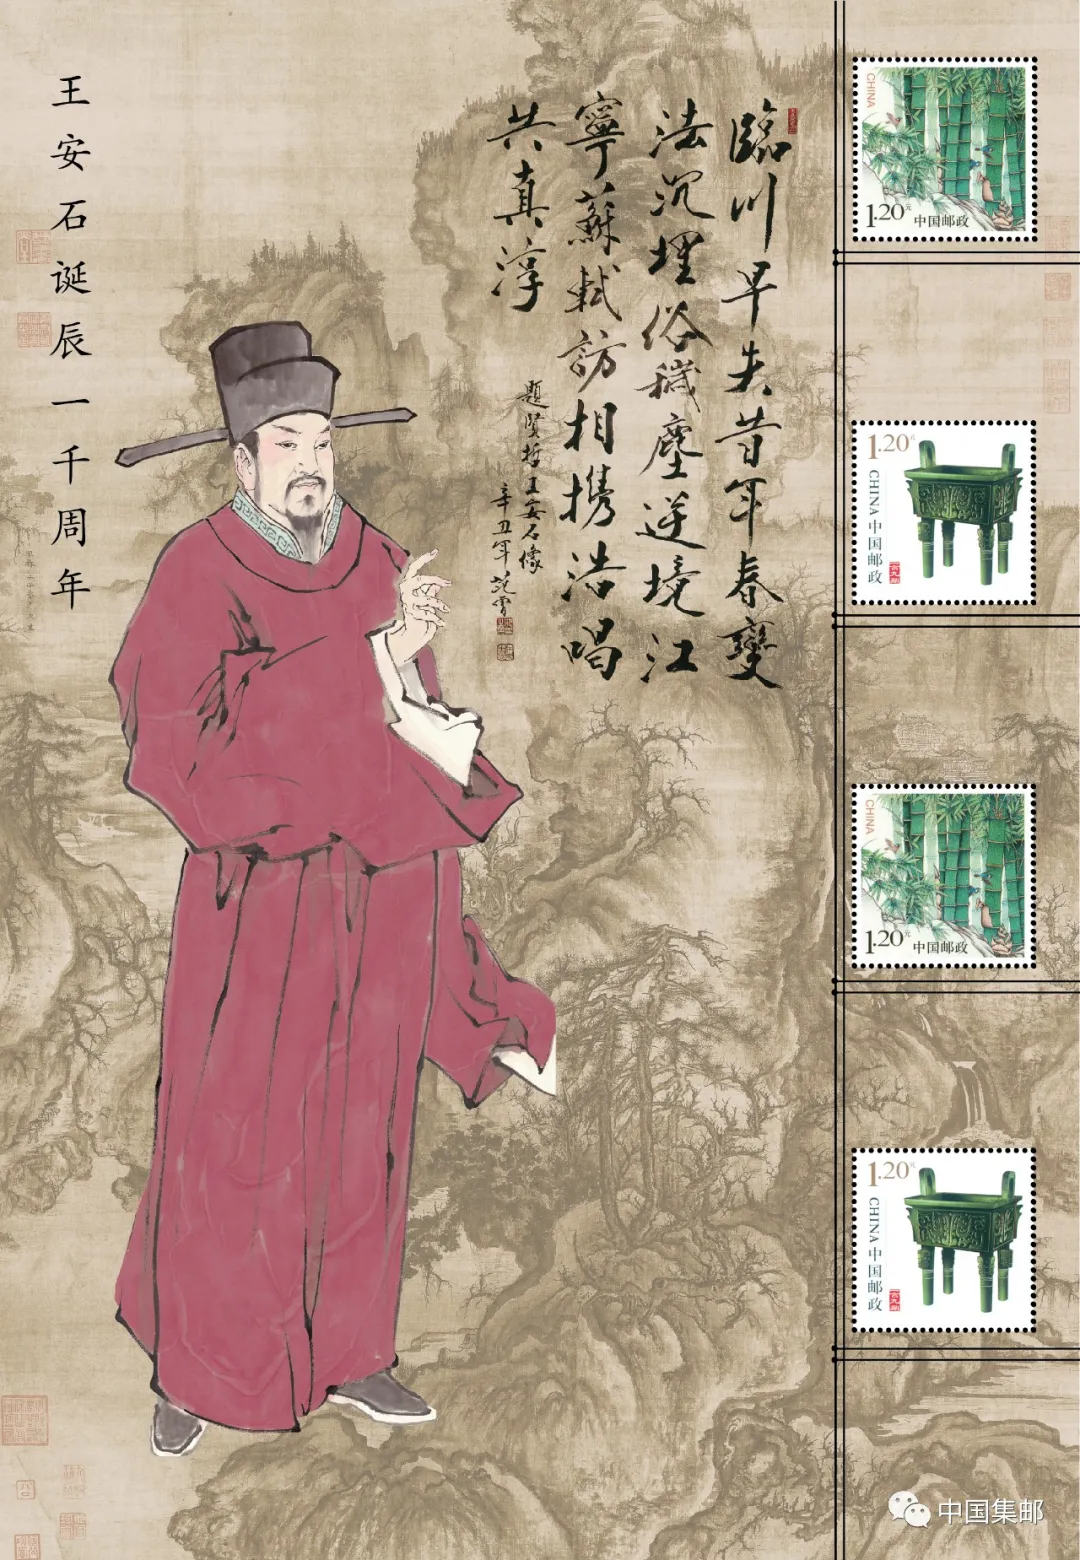 王安石诞辰一千周年
臨川早失昔年春變
法沉埋俗穢塵逆境江
寧蘇軾訪相攜浩唱
共真淳
題賢哲王安石像
辛丑年范曾
CHINA
1.20元
中国邮政
1.20元
CHINA中国邮政
CHINA
1.20元
中国邮政
1.20元
CHINA中国邮政
中国集邮